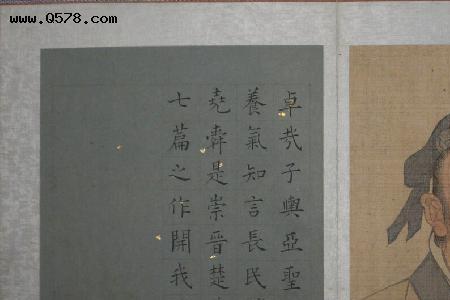 www.Q578.com
卓㦲子輿亞聖
養氣知言長民
堯舜是崇晉楚
七篇之作開我